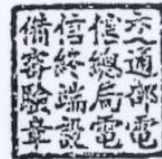 交通部電
信總局電
信終端設
備審驗章